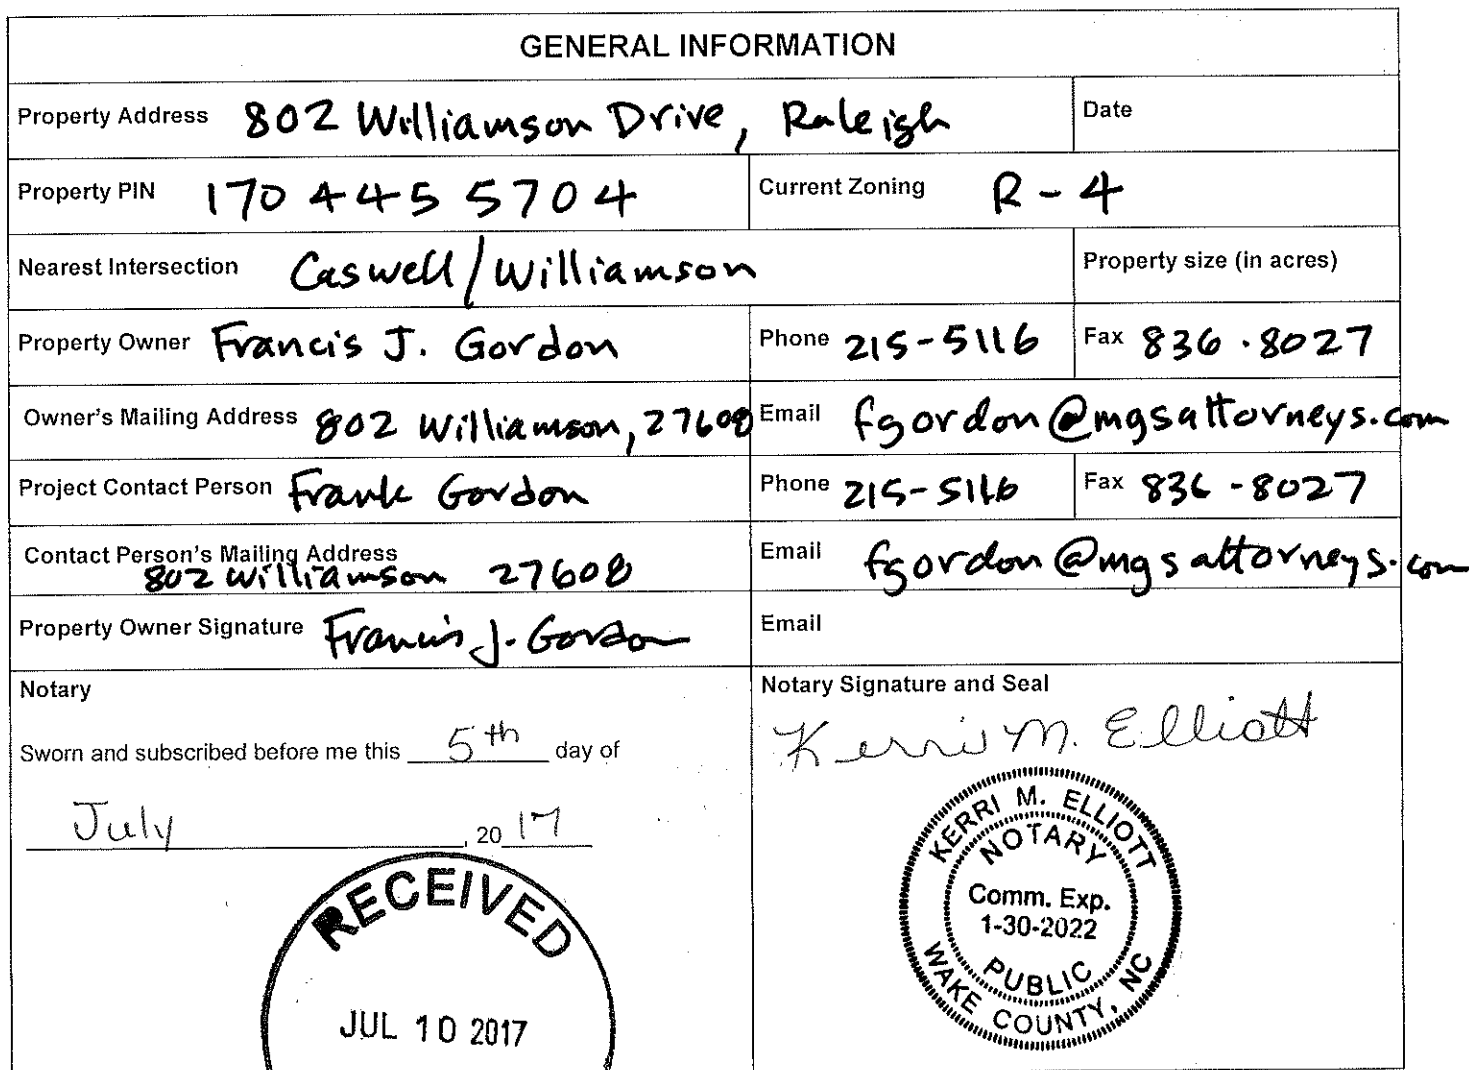 GENERAL INFORMATION
Property Address 802 Williamson Drive, Raleigh Date
Property PIN 170 445 5704 Current Zoning R-4
Nearest Intersection Caswell/Williamson Property size (in acres)
Property Owner Francis J. Gordon Phone 215-5116 Fax 836-8027
Owner's Mailing Address 802 Williamson, 27608 Email fgordon@mgsattorneys.com
Project Contact Person Frank Gordon Phone 215-5116 Fax 836-8027
Contact Person's Mailing Address Email fgordon@mgsattorneys.com
802 Williamson 27608
Property Owner Signature Francis J. Gordon Email
Notary Notary Signature and Seal
Kerri M. Elliott
Sworn and subscribed before me this 5th day of
July, 20 17
RECEIVED
JUL 10 2017
KERRI M. ELLIOTT
NOTARY
Comm. Exp.
1-30-2022
PUBLIC
WAKE COUNTY, NC